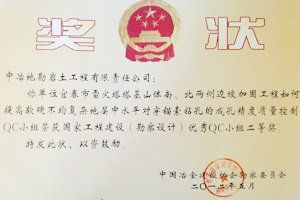 奖 状
中冶地勘岩土工程有限责任公司：
你单位宜春市雷火塔塔菜山体南、北两侧边坡加固工程如何
提高软硬不均复杂地层中水平对穿锚索钻孔的成孔精度质量控制
QC小组荣获国家工程建设（勘察设计）优秀QC小组二等奖。
特发此状，以资鼓励。
中国冶金建设协会勘察委员会
二〇一二年五月